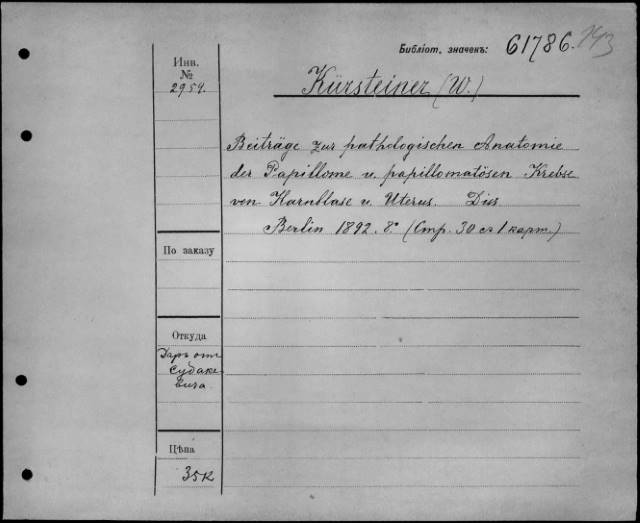 Библіот. значекъ: 61786. 243
Инв.
№
2954.
Kürsteiner (W.)
Beiträge zur pathologischen Anatomie
der Papillome u. papillomatösen Krebse
von Harnblase u. Uterus. Diss
Berlin 1892. 8° (Стр. 30 съ 1 карт.)
По заказу
Откуда
Даръ отъ
Судаке-
вича
Цѣна
35к